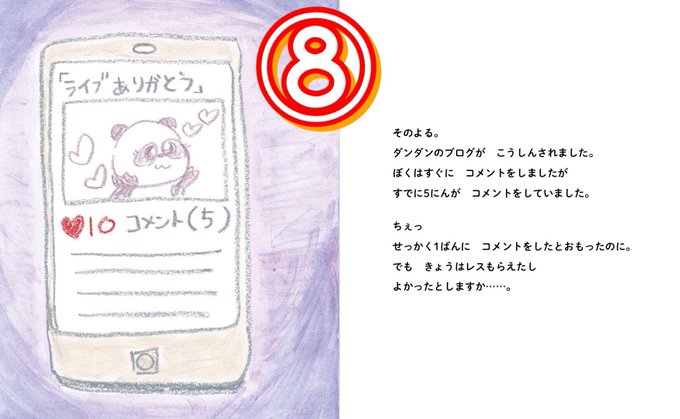 「ライブありがとう」
♥10 コメント(5)
8
そのよる。
ダンダンのブログが　こうしんされました。
ぼくはすぐに　コメントをしましたが
すでに5にんが　コメントをしていました。
ちぇっ
せっかく1ばんに　コメントをしたとおもったのに。
でも　きょうはレスもらえたし
よかったとしますか……。